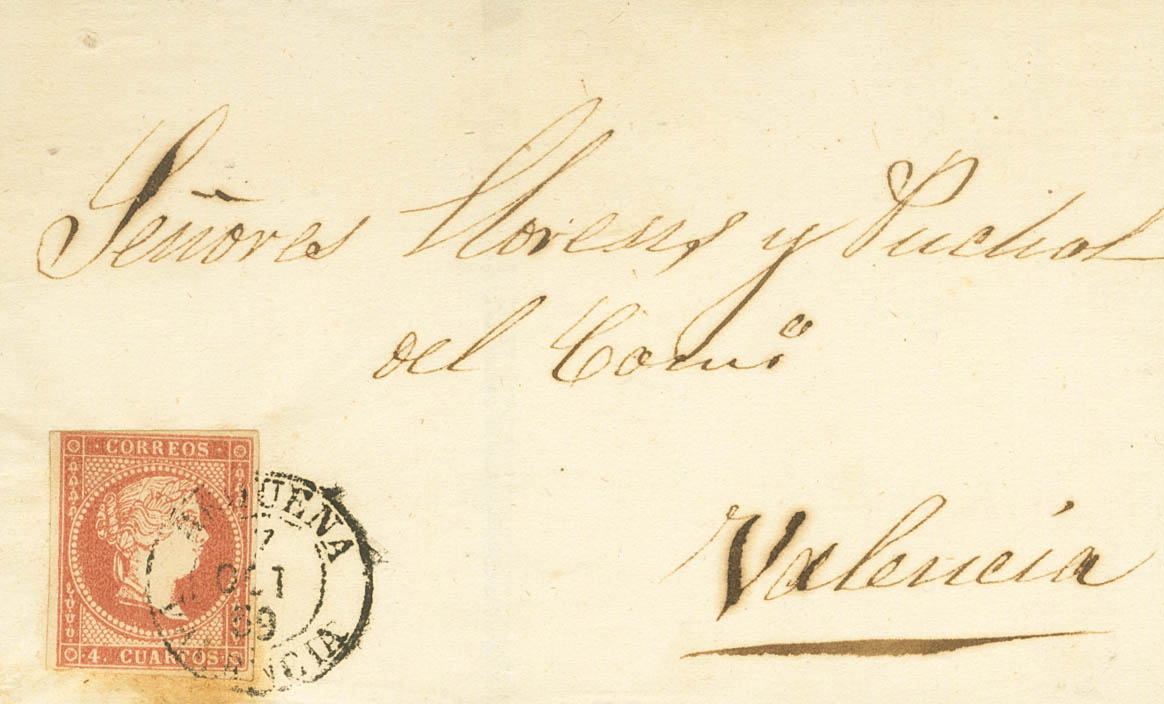 Señores Llorens y Puchol
del Comº
Valencia
CORREOS
4. CUARTOS
REQUENA
7
OCT
59
VALENCIA